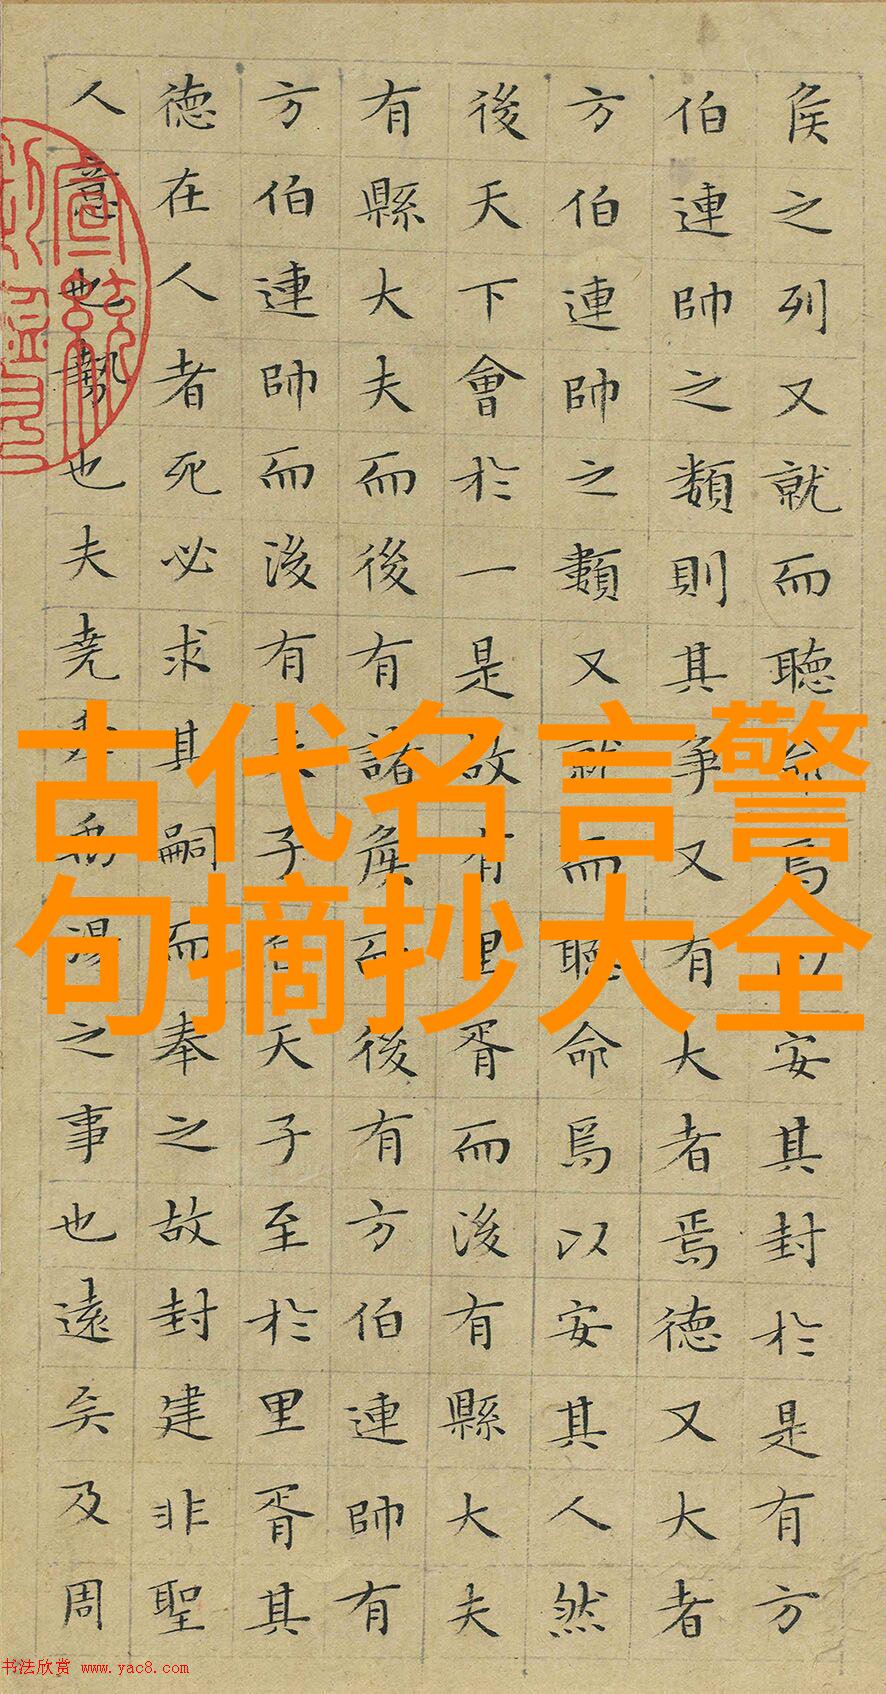 侯之列又就而聽命焉以安其封於是有方
伯連帥之類則其爭又有大者焉德又大者
方伯連帥之類又就而聽命焉以安其人然
後天下會於一是故有里胥而後有縣大夫
有縣大夫而後有諸侯而後有方伯連帥有
方伯連帥而後有天子自天子至於里胥其
德在人者死必求其嗣而奉之故封建非聖
人意也勢也夫堯舜禹湯之事也遠矣及周
古代名言警
句摘抄大全
书法欣赏 www.yac8.com